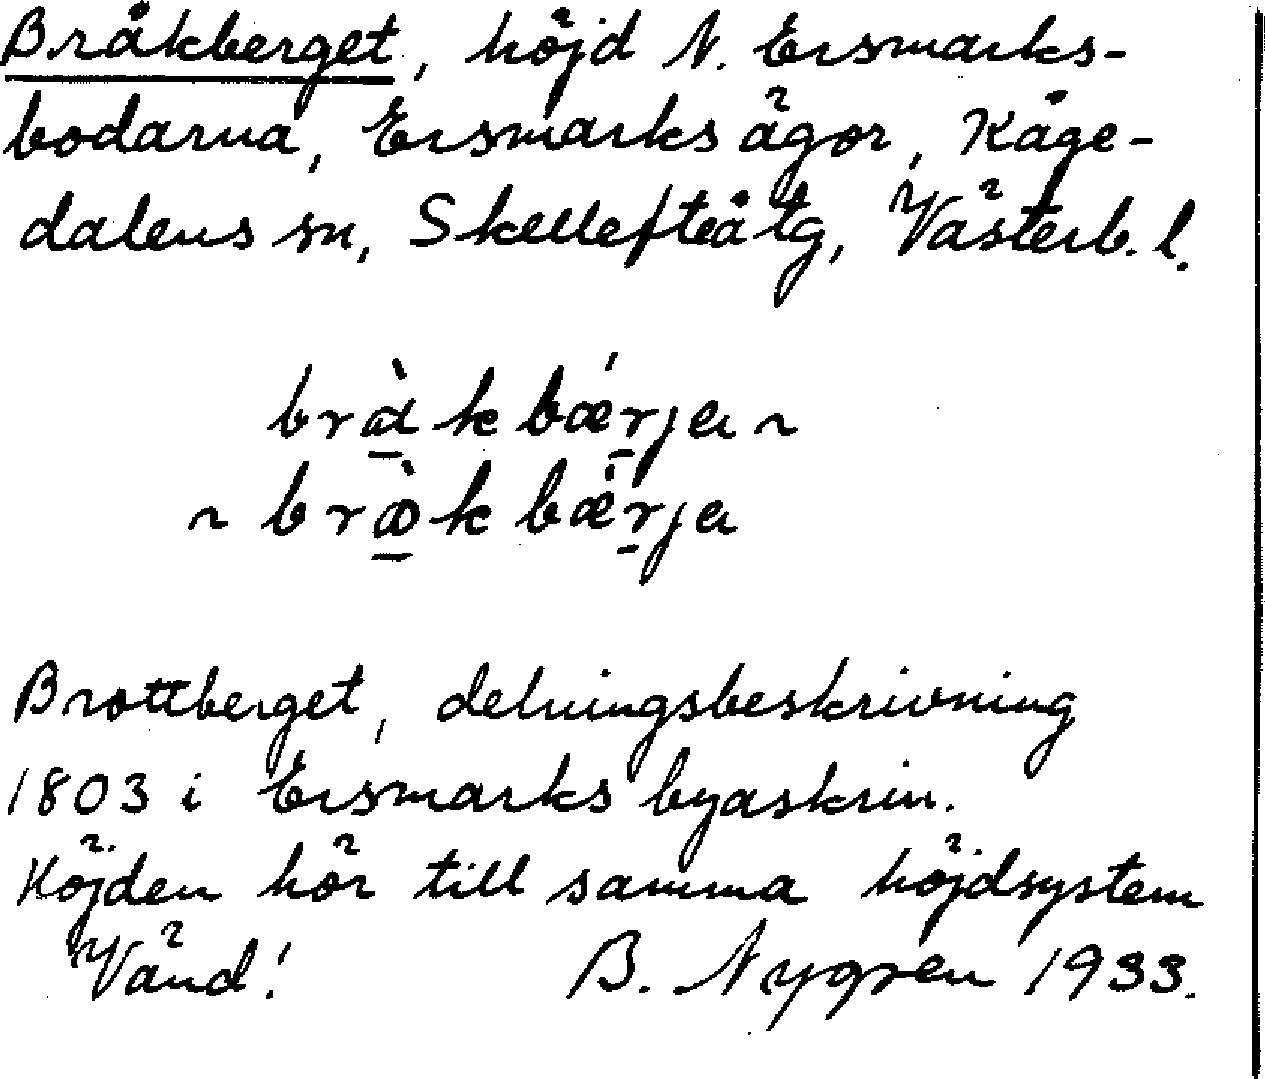 Bråkberget, höjd N. Ersmarks-
bodarna, Ersmarks ägor, Kåge-
dalens sn, Skellefteå tg, Västerb. l.
bràkbǽrja ~
~ brœ̀kbǽrja
Brottberget, delningsbeskrivning
1803 i Ersmarks byaskrin.
Höjden hör till samma höjdsystem
Vänd! B. Nygren 1933.